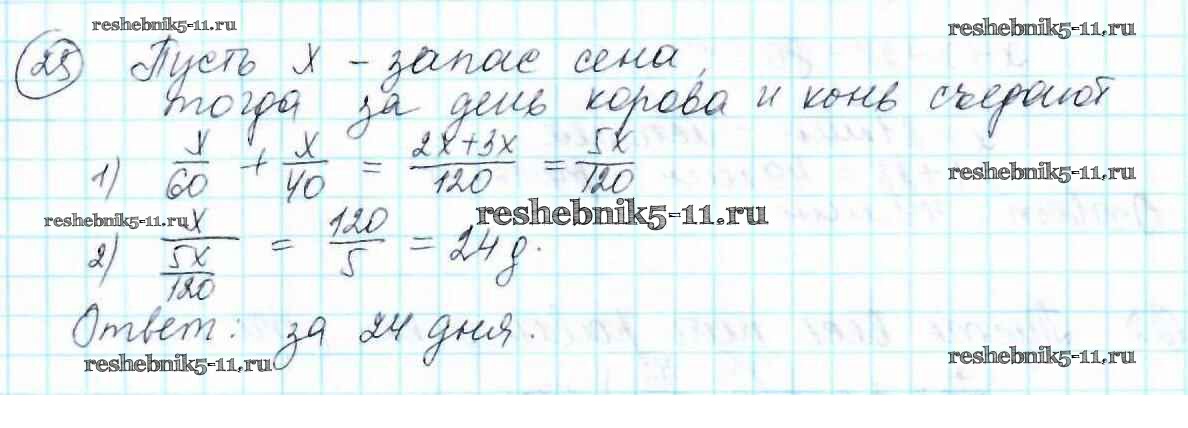 reshebnik5-11.ru
reshebnik5-11.ru
25 Пусть х – запас сена,
тогда за день корова и конь съедают
1) x/60 + x/40 = 2x+3x/120 = 5x/120
reshebnik5-11.ru
reshebnik5-11.ru
reshebnik5-11.ru
2) x/5x/120 = 120/5 = 24 д.
Ответ: за 24 дня.
reshebnik5-11.ru
reshebnik5-11.ru